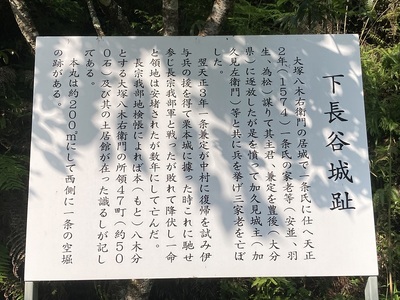 下長谷城趾
大塚八木右衛門の居城で一条氏に仕へ天正
2年(1574)一条氏の家老等(安並、羽
生、為松)謀りて其主君、兼定を豊後(大分
県)に遂放したが是を憤って加久見城主(加
久見左衛門)等と共に兵を挙げ三家老を亡ぼ
した。
翌天正3年一条兼定が中村に復帰を試み伊
与兵の援を得て栗本城に據った時これに馳せ
参じ長宗我部軍と戦ったが敗れて降伏し一命
と領地は安堵されたが数年にして亡んだ。
長宗我部地検帳によれば本(もと)八木分
とする大塚八木右衛門の所領47町(約50
0石)及び其の土居館が在った識るしが記し
てある。
本丸は約200㎡にして西側に一条の空堀
の跡がある。